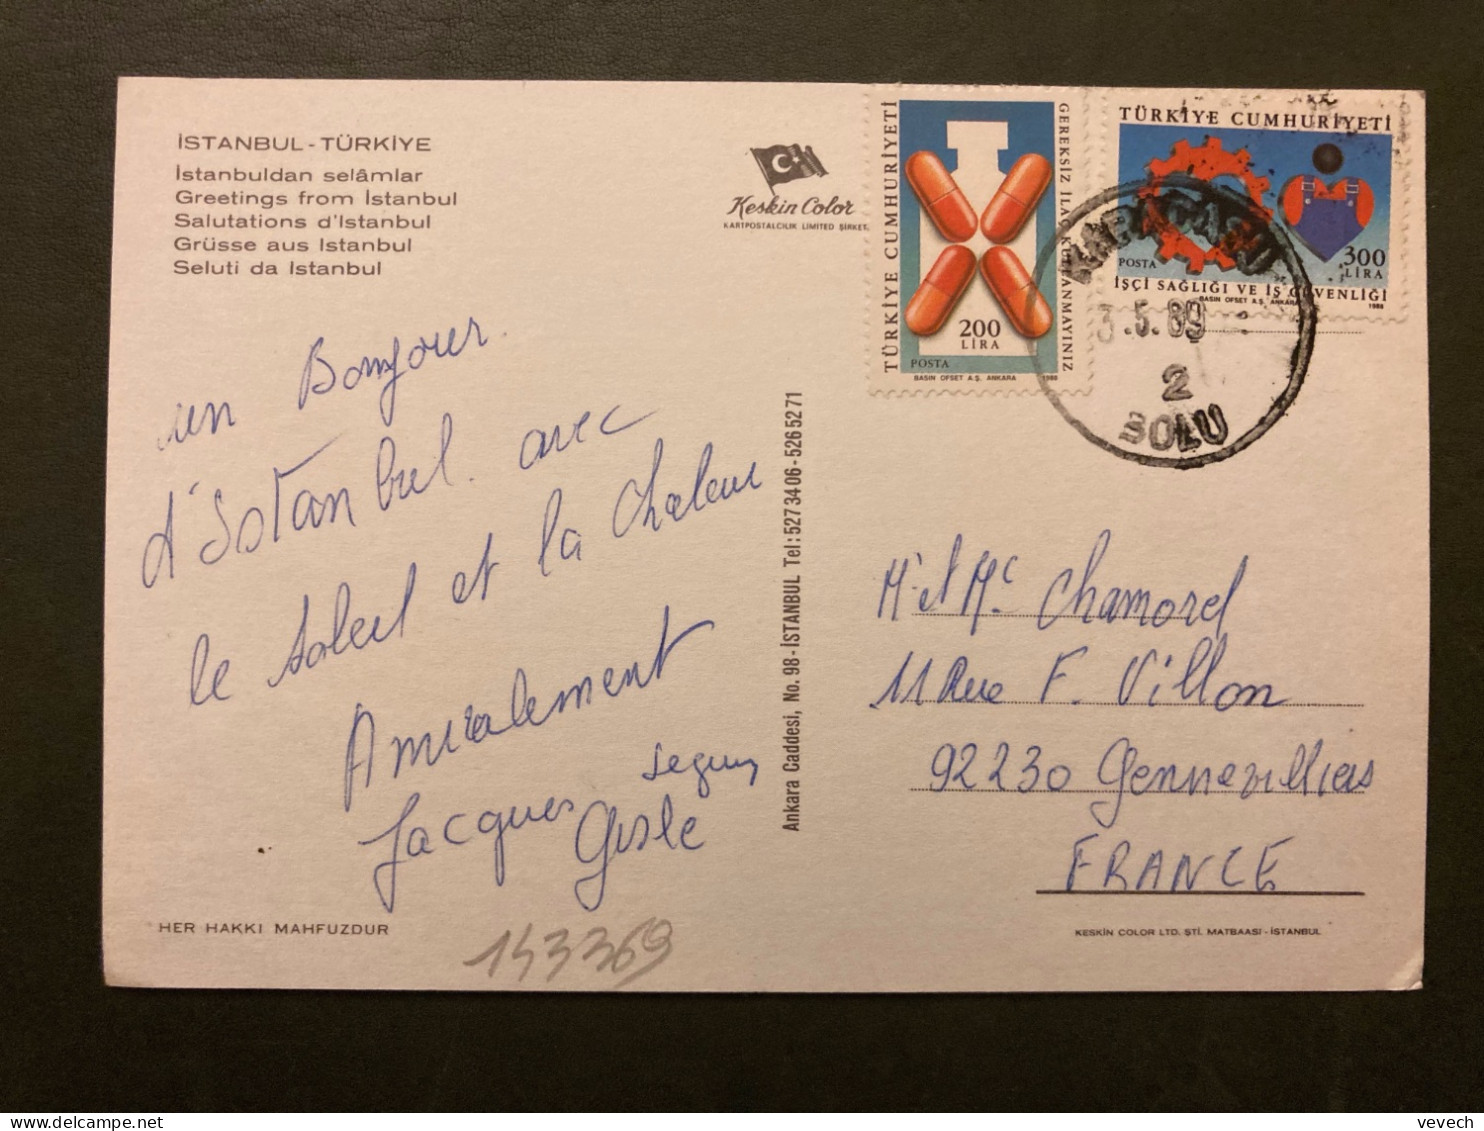 İSTANBUL-TÜRKİYE
İstanbuldan selâmlar
Greetings from İstanbul
Salutations d'Istanbul
Grüsse aus Istanbul
Seluti da Istanbul
Keskin Color
KARTPOSTALCILIK LIMITED ŞİRKET
TÜRKİYE CUMHURİYETİ
GEREKSİZ İLAÇ KULLANMAYINIZ
200
LİRA
POSTA
BASIN OFSET A.Ş. ANKARA 1988
TÜRKİYE CUMHURİYETİ
300
LİRA
POSTA
İŞÇİ SAĞLIĞI VE İŞ GÜVENLİĞİ
BASIN OFSET A.Ş. ANKARA 1988
3.5.89
2
BOLU
un Bonjour
d'Istanbul avec
le soleil et la chaleur
Amicalement
Jacques
Ankara Caddesi, No. 98-İSTANBUL Tel: 527 34 06-526 52 71
Mr et Me Chamorel
11 Rue F. Villon
92230 Gennevilliers
FRANCE
HER HAKKI MAHFUZDUR
143369
KESKİN COLOR LTD. ŞTİ. MATBAASI-İSTANBUL
vevech